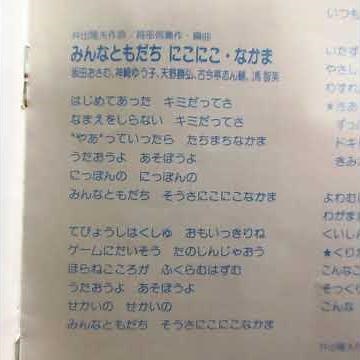 井出隆夫作詞／越部信義作・編曲
みんなともだち にこにこ・なかま
坂田おさむ、神崎ゆう子、天野勝弘、古今亭志ん輔、馮智英
はじめてあった　キミだってさ
なまえをしらない　キミだってさ
“やあ”っていったら　たちまちなかま
うたおうよ　あそぼうよ
にっぽんの　にっぽんの
みんなともだち　そうさにこにこなかま
てびょうしはくしゅ　おもいっきりね
ゲームにだいそう　たのしんじゃおう
ほらねこころが　ふくらむはずむ
うたおうよ　あそぼうよ
せかいの　せかいの
みんなともだち　そうさにこにこなかま
いつも
やさし
わすれ
ドキ
きみ
よわむ
わがま
くいしん
★くりか
こんなこ
そっくり
こんな
井出隆夫